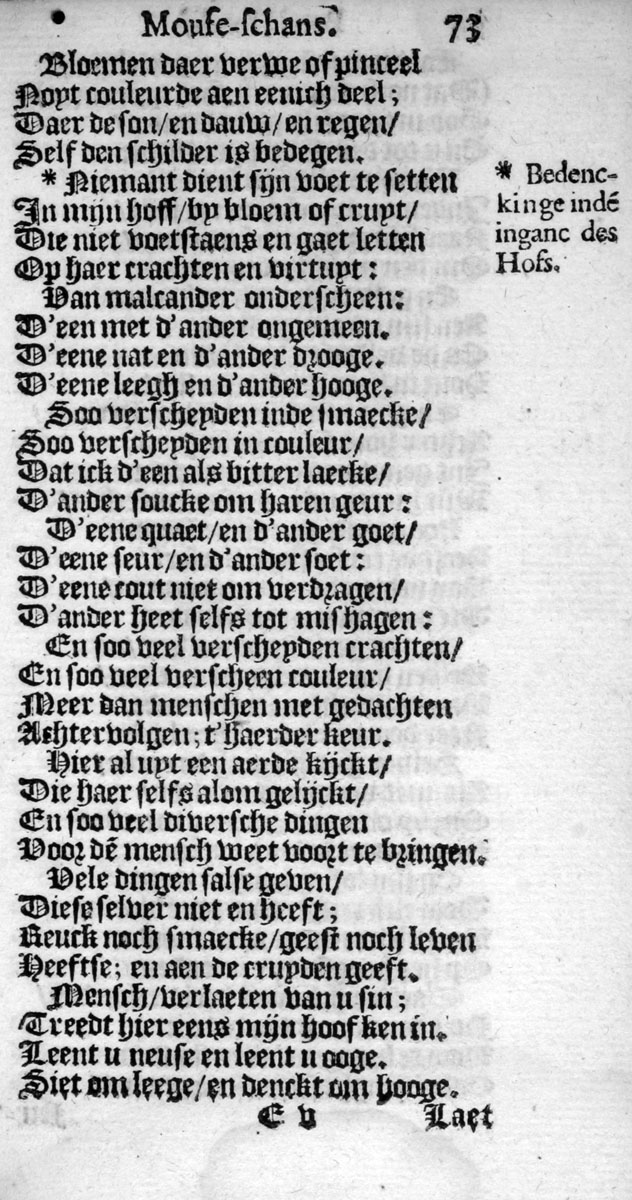 Mouse-schans. 73
Bloemen daer verwe of pinceel
Noyt couleurde aen eenich deel;
Daer de son/en dauw/en regen/
Self den schilder is bedegen.
* Niemant dient sijn voet te setten
In mijn hoff/by bloem of cruyt/
Die niet voetstaens en gaet letten
Op haer crachten en virtuyt:
Van malcander onderscheen:
D'een met d'ander ongemeen.
D'eene nat en d'ander drooge.
D'eene leegh en d'ander hooge.
Soo verscheyden inde smaecke/
Soo verscheyden in couleur/
Dat ick d'een als bitter laecke/
D'ander soucke om haren geur:
D'eene quaet/en d'ander goet/
D'eene seur/en d'ander soet:
D'eene cout niet om verdragen/
D'ander heet selfs tot mishagen:
En soo veel verscheyden crachten/
En soo veel verscheen couleur/
Meer dan menschen met gedachten
Achtervolgen; t'haerder keur.
Hier al uyt een aerde kijckt/
Die haer selfs alom gelijckt/
En soo veel diversche dingen
Voor dē mensch weet voort te bringen.
Vele dingen salse geven/
Diese selver niet en heeft;
Reuck noch smaecke/geest noch leven
Heeftse; en aen de cruyden geeft.
Mensch/verlaeten van u sin;
Treedt hier eens mijn hoofken in.
Leent u neuse en leent u ooge.
Siet om leege/en denckt om hooge.
E v Laet
* Bedenc-
kinge indē
inganc des
Hofs.